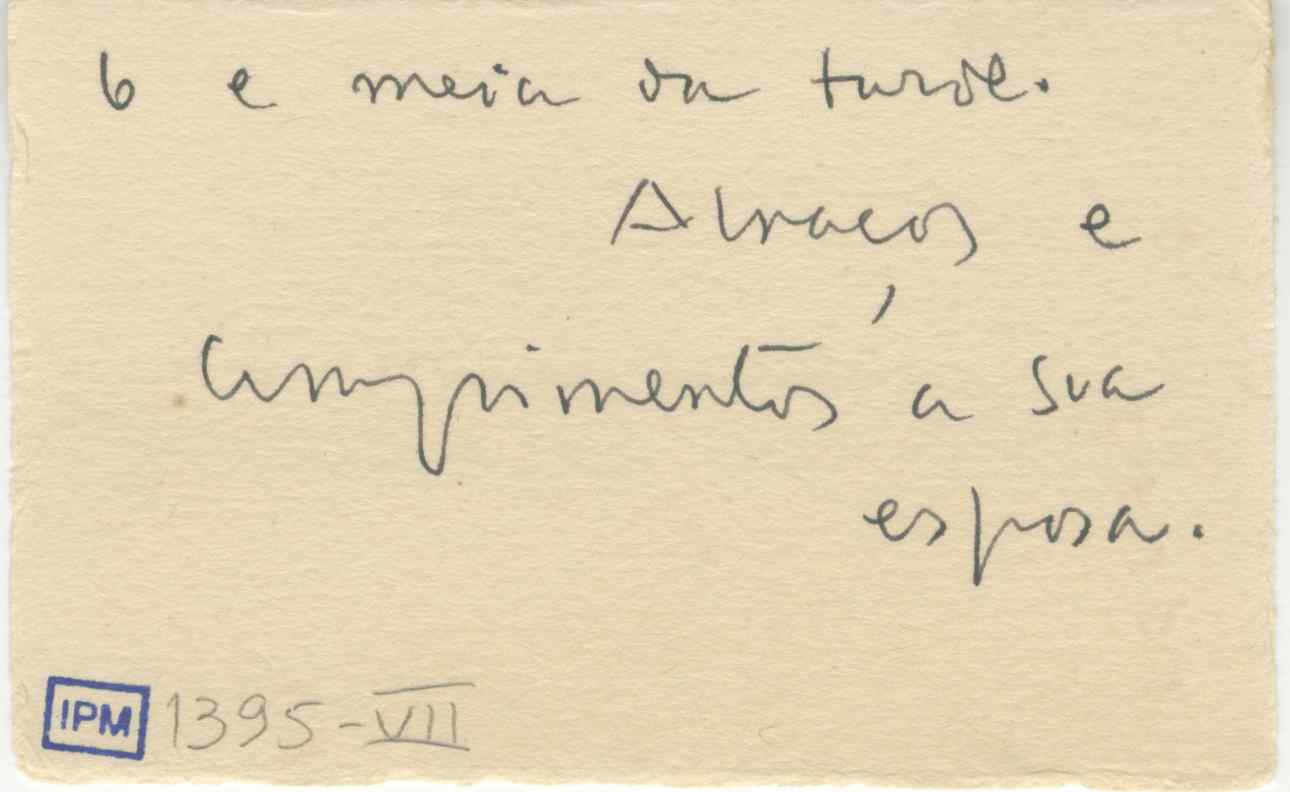 6 e meia da tarde.
Abraços e
cumprimentos a sua
esposa.
IPM 1395-VII